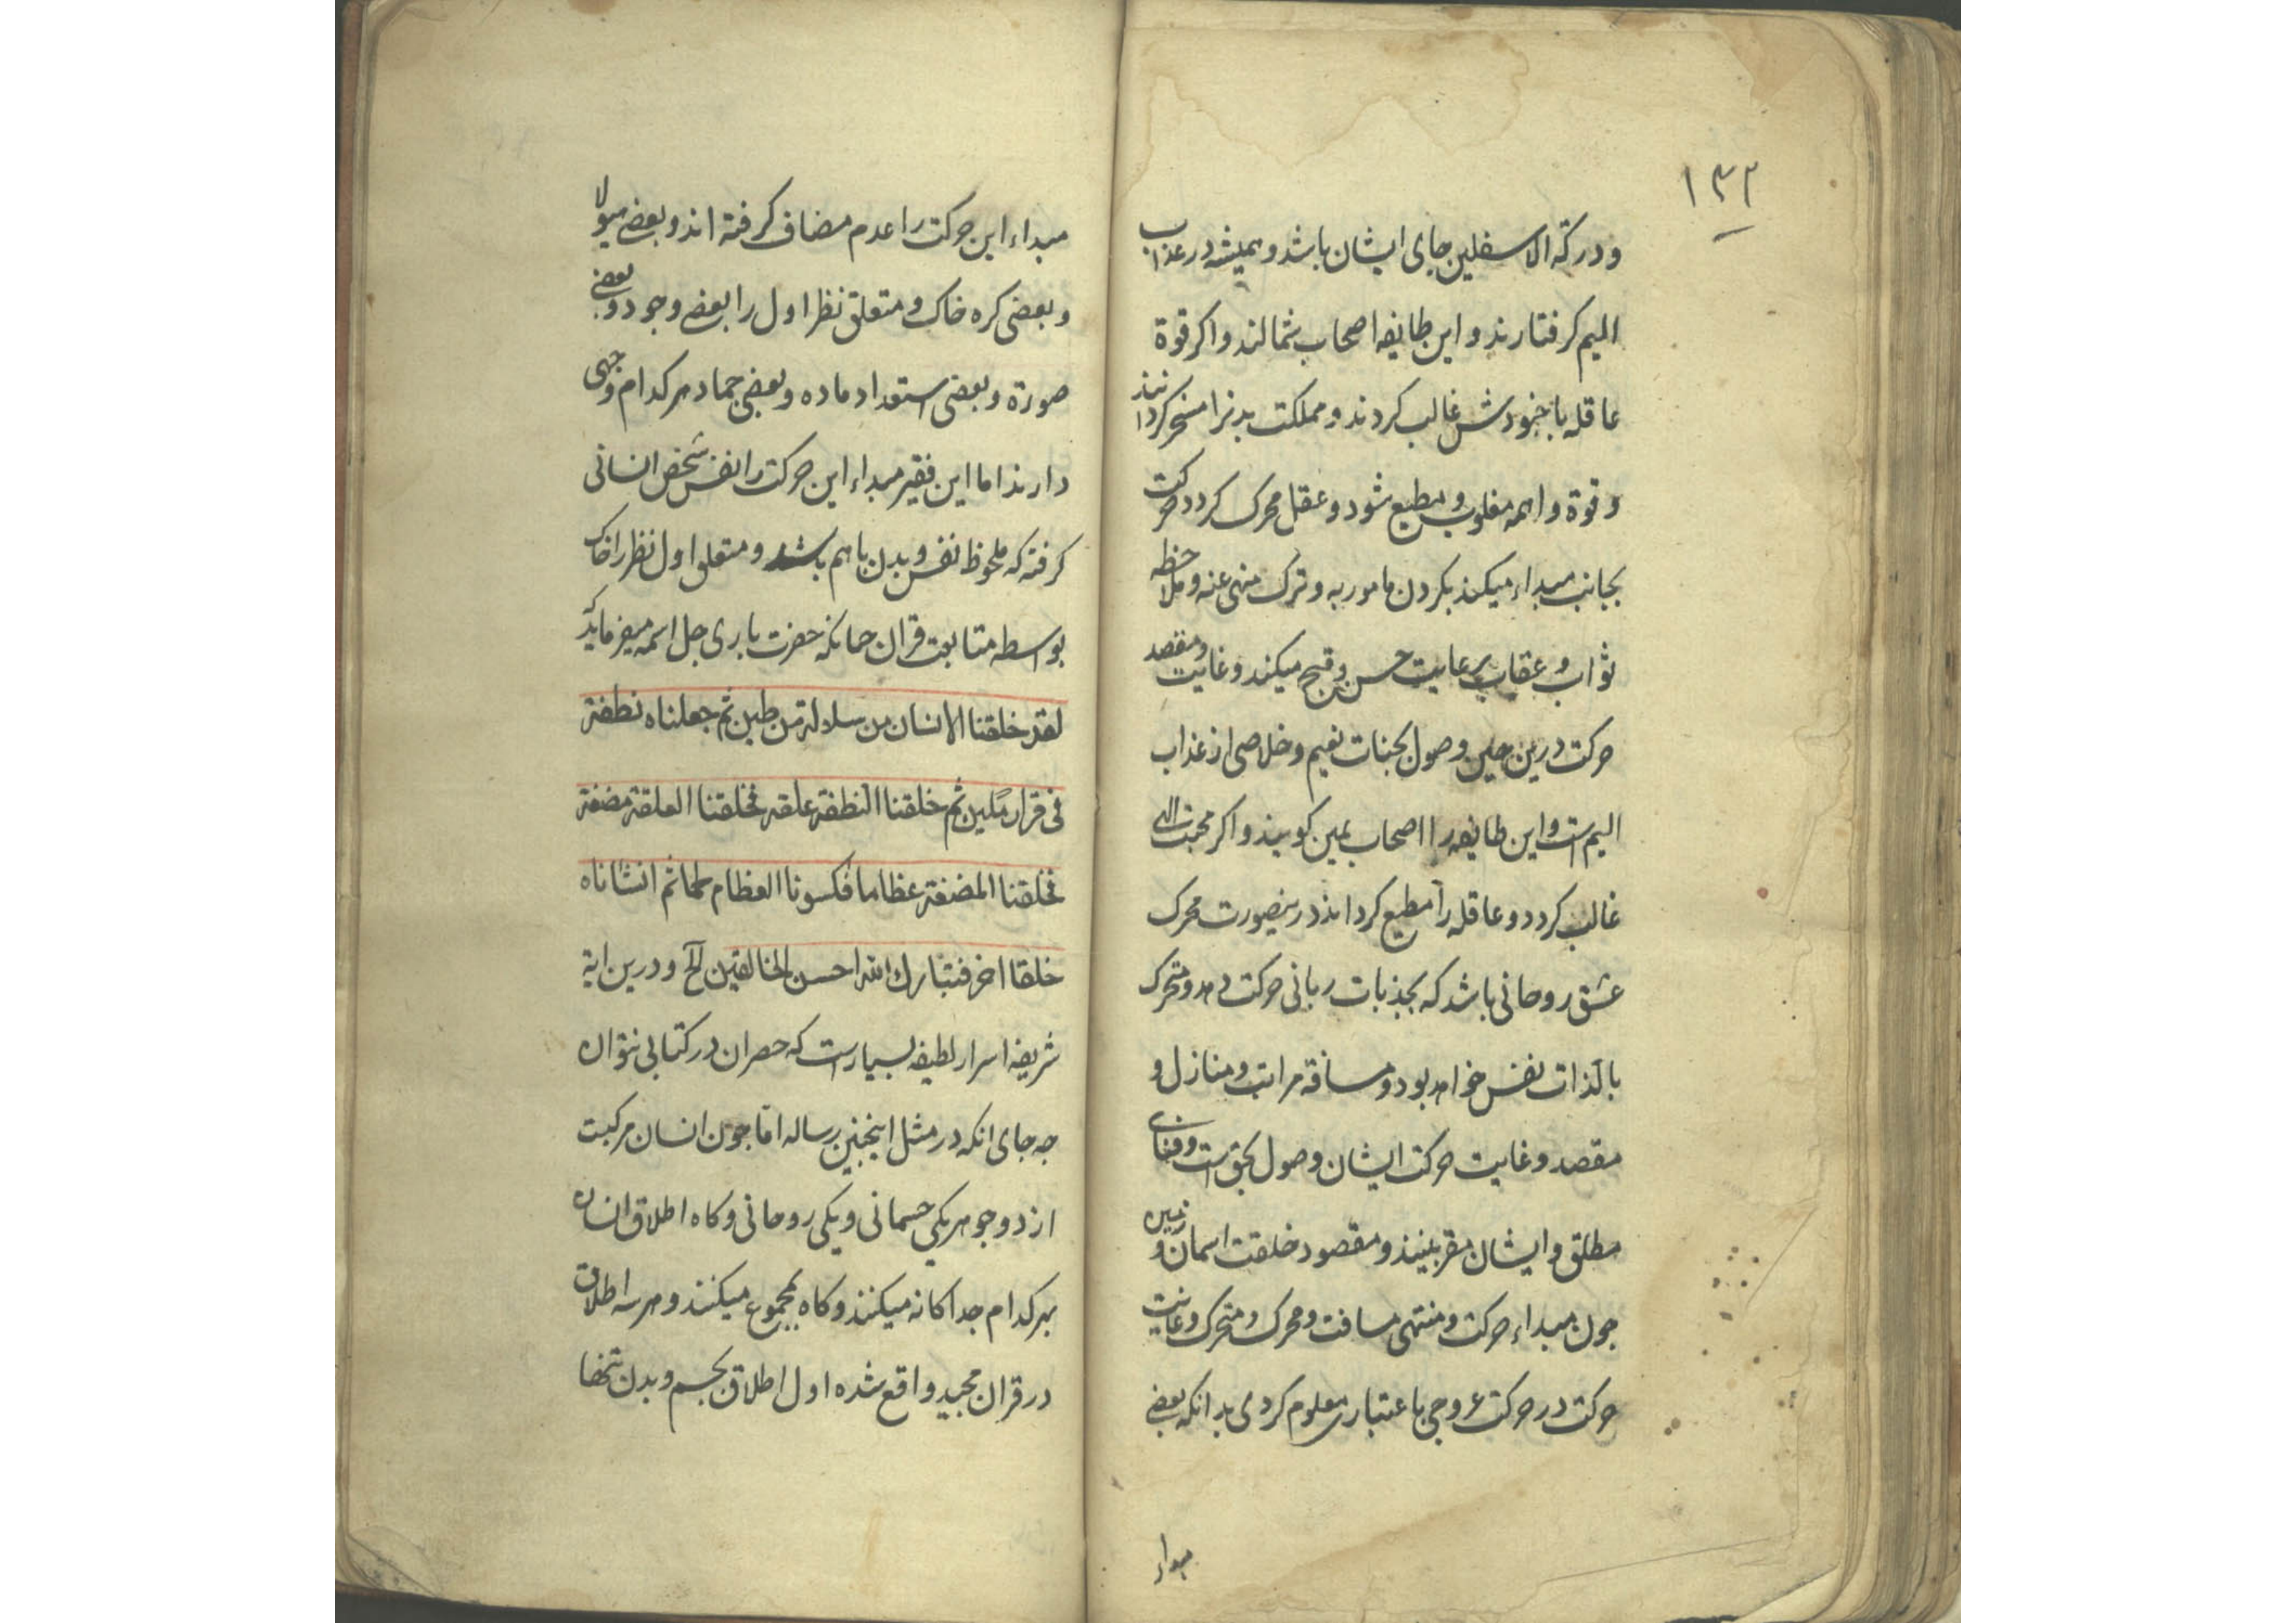 ۱۳۲
و درکه الاسفلین جای ایشان باشد و همیشه در عذاب
الیم کرفتارند و این طایفه اصحاب شمالند و اکر قوة
عاقله با جنودش غالب کردند و مملکت بدنرا مسخر کردانند
و قوة واهمه مغلوب و مطیع شود و عقل محرک کردد حرکت
بجانب مبداء میکند بکردن مامور به و ترک منهی عنه و ملاحظه
ثواب و عقاب و رعایت حسن و قبح میکند و غایت و مقصد
حرکت درین حین وصول بجنات نعیم و خلاصی از عذاب
الیم است و این طایفه را اصحاب یمین کویند و اکر محبت الهی
غالب کردد و عاقله را مطیع کرداند درینصورت محرک
عشق روحانی باشد که بجذبات ربانی حرکت دهد و متحرک
بالذات نفس خواهد بود و مسافة مراتب و منازل و
مقصد و غایت حرکت ایشان وصول بحق است و فنای
مطلق و ایشان مقربینند و مقصود خلقت اسمان و زمین
جون مبداء حرکت و منتهی مسافت و محرک و متحرک و غایت
حرکت در حرکت عروجی باعتباری معلوم کردی بدانکه بعضی
مبداء
مبداء این حرکت را عدم مضاف کرفته اند و بعضی هیولا
و بعضی کره خاک و متعلق نظر اول را بعضی وجود و بعضی
صورة و بعضی استعداد ماده و بعضی جماد هرکدام وجهی
دارند اما این فقیر مبداء این حرکت را نفس شخص انسانی
کرفته که ملحوظ نفس و بدن باهم باشد و متعلق اول نظر را خاک
بواسطه متابعت قران جنانکه حضرت باری جل اسمه میفرماید که
لقد خلقنا الانسان من سلالة من طین ثم جعلناه نطفة
فی قرار مکین ثم خلقنا النطفة علقة فخلقنا العلقة مضغة
فخلقنا المضغة عظاما فکسونا العظام لحما ثم انشاناه
خلقا اخر فتبارک الله احسن الخالقین الخ و درین ایة
شریفه اسرار لطیفه بسیارست که حصر ان در کتابی نتوان
جه جای انکه در مثل اینجنین رساله اما جون انسان مرکبت
از دو جوهر یکی جسمانی و یکی روحانی و کاه اطلاق انسان
بهرکدام جداکانه میکنند و کاه بمجموع میکنند و هرسه اطلاق
در قران مجید واقع شده اول اطلاق بجسم و بدن تنها